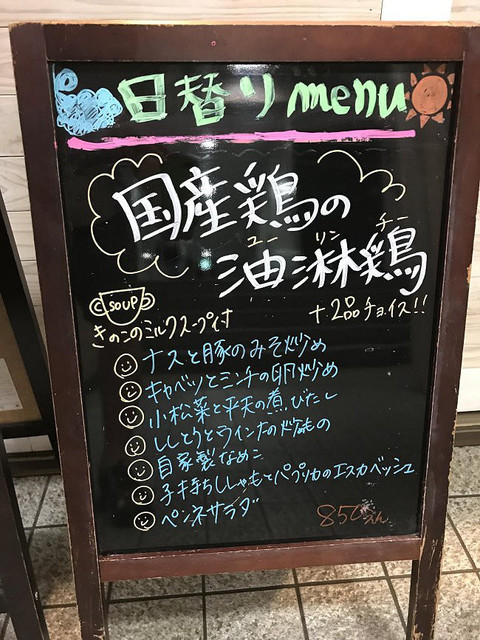 日替り menu
国産鶏の
ユー リン チー
油淋鶏
SOUP
きのこのミルクスープ付
+2品チョイス!!
ナスと豚のみそ炒め
キャベツとミンチの卵炒め
小松菜と平天の煮びたし
ししとうとウインナの炒めもの
自家製なめこ
子持ちししゃもとパプリカのエスカベッシュ
ペンネサラダ
850えん